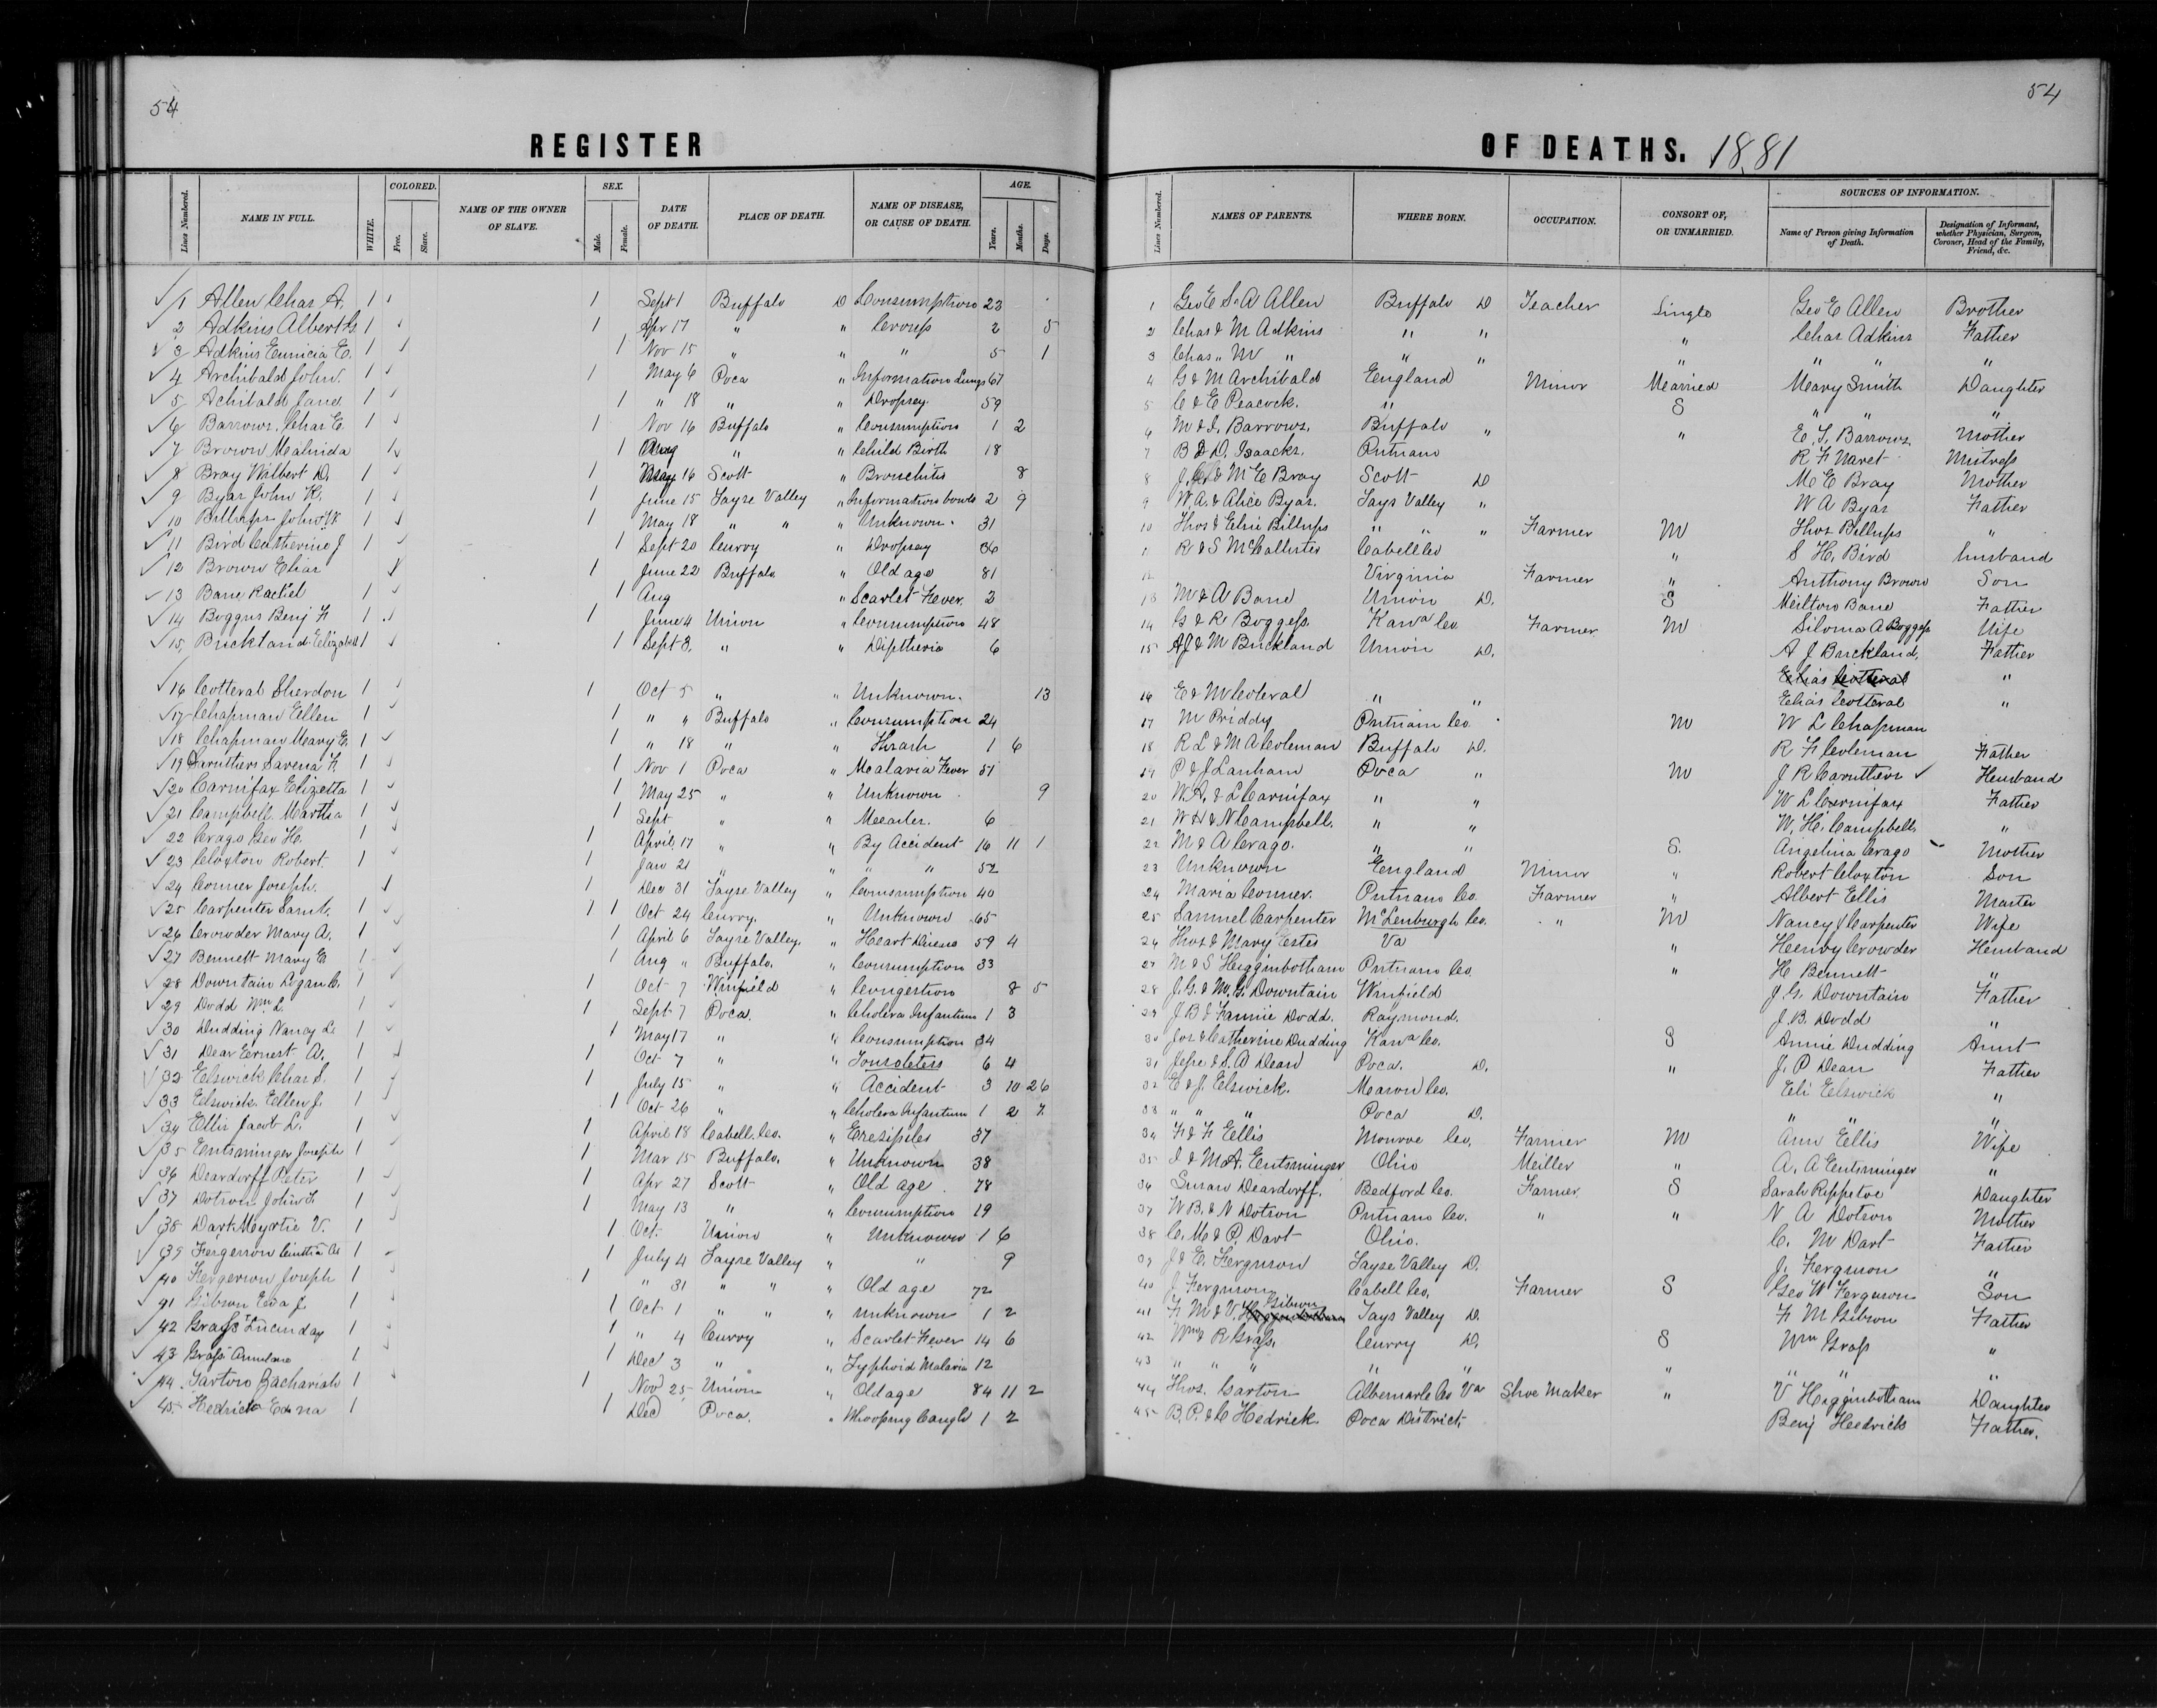 54
54
REGISTER OF DEATHS. 1881
Lines Numbered. NAME IN FULL. WHITE. COLORED. Free. Slave. NAME OF THE OWNER OF SLAVE. SEX. Male. Female. DATE OF DEATH. PLACE OF DEATH. NAME OF DISEASE, OR CAUSE OF DEATH. AGE. Years. Months. Days. Lines Numbered. NAMES OF PARENTS. WHERE BORN. OCCUPATION. CONSORT OF, OR UNMARRIED. SOURCES OF INFORMATION. Name of Person giving Information of Death. Designation of Informant, whether Physician, Surgeon, Coroner, Head of the Family, Friend, &c.
1 Allen Chas A. 1 1 Sept 1 Buffalo D Consumption 23 1 Geo E S. A Allen Buffalo D Teacher Single Geo E Allen Brother
2 Adkins Albert G. 1 1 Apr 17 " " Croup 2 5 2 Chas & M Adkins " " " Chas Adkins Father
3 Adkins Eunicia E. 1 1 Nov 15 " " " 5 1 3 Chas " M " " " " " " "
4 Archibald John. 1 1 May 6 Poca " Information Lungs 67 4 G & M Archibald England Minor Married Mary Smith Daughter
5 Achibald Jane 1 1 " 18 " " Dropsey 59 5 C & E Peacock. " S " " "
6 Barrows. Chas E. 1 1 Nov 16 Buffalo " Consumption 1 2 6 M & J. Barrows. Buffalo " " E. S. Barrows Mother
7 Brown Malinda 1 1 Aug " " Child Birth 18 7 B & D. Isaacks. Putnam R F Naret Mistress
8 Bray Wilbert D. 1 1 May 16 Scott " Bronchitis 8 8 J. & M E Bray Scott D M E Bray Mother
9 Byar John K. 1 1 June 15 Tayse Valley " Information bowls 2 9 9 W. A. & Alice Byar. Tays Valley " W A Byar Father
10 Billups John W. 1 1 May 18 " " " Unknown. 31 10 Thos & Elsie Billups " " " Farmer M Thos Billups "
11 Bird Catherine J 1 1 Sept 20 Curry " Dropsey 36 11 R & S McCallister Cabell Co " S H. Bird husband
12 Brown Elias 1 June 22 Buffalo " Old age 81 12 Virginia Farmer " Anthony Brown Son
13 Bane Rachel 1 1 Aug " Scarlet Fever. 3 13 M & A Bane Union D. S Milton Bane Father
14 Boggus Benj F 1 1 June 4 Union " Consumption 48 14 G & R Boggess Kanᵃ Co Farmer M Siloma A Boggess Wife
15 Buckland Elizabeth 1 1 Sept 3. " " Diptheria 6 15 A J & M Buckland Union D. A J Buckland, Father
Elias Cotteral "
16 Cotteral Sherdon 1 1 Oct 5 " " Unknown. 13 16 E & M Coteral " " Elias Cotteral "
17 Chapman Ellen 1 1 " " Buffalo " Consumption 24 17 M Priddy Putnam Co. M W L Chapman
18 Chapman Mary E. 1 1 " 18 " " Thrash 1 6 18 R L & M A Coleman Buffalo D. R F Coleman Father
19 Caruthers Savena F. 1 1 Nov 1 Poca " Malaria Fever 51 19 P & J Lanham Poca " M J R Caruthers Husband
20 Carnifax Elizetta 1 1 May 25 " " Unknown 9 20 W. A. & L Carnifax " " W L Carnifax Father
21 Campbell Martha 1 1 Sept " " Measles. 6 21 W H & N Campbell. " " W. H. Campbell "
22 Crago Geo H. 1 1 April 17 " " By Accident 16 11 1 22 M & A Crago. " " S. Angelina Crago Mother
23 Cloxton Robert. 1 1 Jan 21 " " " " 52 23 Unknown England Minor " Robert Cloxton Son
24 Conner Joseph. 1 Dec 31 Tayse Valley " Consumption 40 24 Maria Conner. Putnam Co. Farmer " Albert Ellis Master
25 Carpenter Saml. 1 1 1 Oct 24 Curry. " Unknown 65 25 Samuel Carpenter McLenburgh Co. " M Nancy J Carpenter Wife
26 Crowder Mary A. 1 1 April 6 Tayse Valley. " Heart Disease 59 4 26 Thos & Mary Estes Va " Henry Crowder Husband
27 Bennett Mary E 1 1 Aug " Buffalo. " Consumption 33 27 M & S Higginbotham Putnam Co. " H Bennett "
28 Downtain Logan C. 1 1 Oct 7 Winfield " Congestion 8 5 28 J. G. & M. G. Downtain Winfield J. G. Downtain Father
29 Dodd Wm L. 1 1 Sept 7 Poca. " Cholera Infantum 1 3 29 J B & Fannie Dodd. Raymond. J. B. Dodd "
30 Dudding Nancy L 1 1 May 17 " " Consumption 34 30 Jos & Catherine Dudding Kanᵃ Co. S Annie Dudding Aunt
31 Dear Ernest A. 1 1 Oct 7 " " Tonsoleters 6 4 31 Jesse & S. A Dean Poca. D. " J. P Dean Father
32 Elswick Chas S. 1 1 July 15 " " Accident 3 10 26 32 E & J. Elswick. Mason Co. Eli Elswick "
33 Elswick. Ellen J. 1 1 Oct 26 " " Cholera Infantum 1 2 7. 33 " " " Poca D. " " "
34 Ellis Jacob L. 1 1 April 18 Cabell. Co. " Eresipiles 37 34 F & F Ellis Monroe Co. Farmer M Ann Ellis Wife
35 Entsminger Joseph 1 1 Mar 15 Buffalo. " Unknown 38 35 D & M. A. Entsminger Ohio Miller " A. A Entsminger "
36 Deardorff Peter 1 1 Apr 27 Scott " Old age 78 36 Susan Deardorff. Bedford Co. Farmer S Sarah Rippetoe Daughter
37 Dotson John S. 1 1 May 13 " " Consumption 19 37 W B. & N Dotson Putnam Co. " " N A Dotson Mother
38 Dart Myrtie V. 1 1 Oct. Union " Unknown 1 6 38 C. M & P. Dart Ohio. C. M Dart Father
39 Fergerson Cinthia A 1 1 July 4 Tayse Valley " " 9 39 J & E. Ferguson Tayse Valley D. J. Ferguson "
40 Fergerson Joseph 1 1 " 31 " " Old age 72 40 J Ferguson Cabell Co. Farmer S Geo W Ferguson Son
41 Gibson Eva J. 1 1 Oct 1 " " " unknown 1 2 41 F M & V. Gibson Tays Valley D. F M Gibson Father
42 Grass Lucinday 1 1 " 4 Curry " Scarlet Fever 14 6 42 Wm & R Grass, Curry D. S Wm Grass "
43 Grass 1 1 Dec 3 " " Typhoid Malaria 12 43 " " " " " " " " "
44 Zachariah 1 1 Nov 25 Union " Old age 84 11 2 44 Thos. Carton Albemarle Co Va Shoe Maker " V Higginbotham Daughter
45 Hedrick Edna 1 1 Dec Poca. " Whooping Cough 1 2 45 B. P. & C Hedrick. Poca District Benj Hedrick Father.